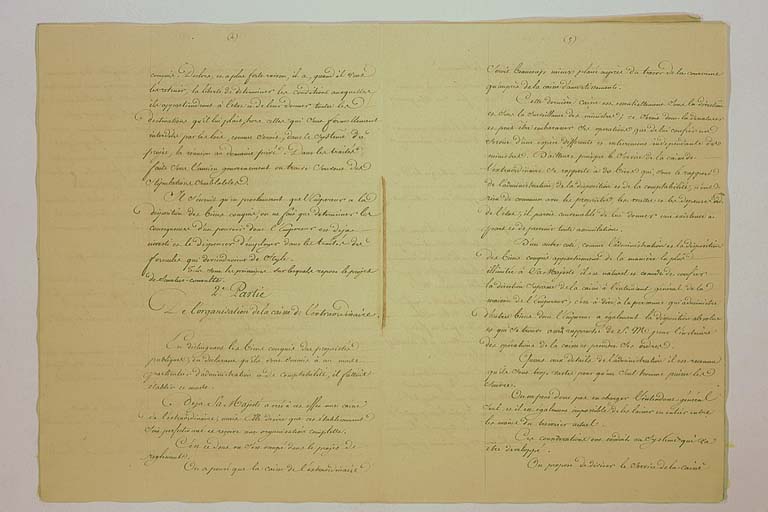 (4)
conquis. Dès lors, et à plus forte raison, il a, quand il veut
les retenir, la liberté de déterminer les conditions auxquelles
ils appartiendront à l'état et de leur donner toutes les
destinations qu'il lui plait, hors celles qui sont formellement
interdites par les lois, comme serait, dans le système du
procès, la réunion au domaine privé. Dans les traités
faits sous l'ancien gouvernement on trouve souvent des
stipulations semblables.
Il s'ensuit qu'en proclamant que l'Empereur a la
disposition des biens conquis, on ne fait que déterminer les
conséquences d'un pouvoir dont l'Empereur est déjà
investi et le dispenser d'employer dans les traités des
formules qui deviendraient de style.
Telles sont les premières sur lesquelles repose le projet
de Senatus-consulte.
2e Partie
De l'organisation de la caisse de l'extraordinaire.
En distinguant les biens conquis des propriétés
publiques, en déclarant qu'ils sont soumis à un mode
particulier d'administration et de comptabilité, il fallait
établir ce mode.
Déja Sa Majesté a créé à cet effet une caisse
de l'extraordinaire, mais S. M. désire que cet établissement
soit perfectionné et reçoive une organisation complette.
C'est ce dont on s'est occupé dans le projet de
règlement.
On a pensé que la caisse de l'extraordinaire
(5)
serait beaucoup mieux placée auprès du trésor de la couronne
qu'auprès de la caisse d'amortissement.
Cette dernière caisse est essentiellement sous la direction
et sous la surveillance des ministres; ce serait donc la dénaturer
et peut être embarrasser ses opérations que de lui confier un
service d'un espèce différente et entièrement indépendante des
ministres. D'ailleurs, puisque le service de la caisse de
l'extraordinaire se rapporte à des biens qui, sous le rapport
de l'administration, de la disposition et de la comptabilité, n'ont
rien de commun avec les propriétés, les recettes et les dépenses
de l'état, il parait convenable de lui donner une existence à
part et de prévenir toute assimilation.
D'un autre coté, comme l'administration et la disposition
des biens conquis appartiennent de la manière la plus
illimitée à Sa Majesté, il est naturel et commode de confier
la direction suprême de la caisse à l'intendant général de la
maison de l'Empereur, c'est à dire, à la personne qui administre
d'autres biens dont l'Empereur a également la disposition absolue
et qui se trouve aussi rapproché de S. M. pour l'instruire
des opérations de la caisse et prendre ses ordres.
Quant aux détails de l'administration il est reconnu
qu'ils sont trop vastes pour qu'un seul homme puisse les
suivre.
On ne peut donc pas en charger l'intendant général
seul, et il est également impossible de les laisser en entier entre
les mains du trésorier actuel.
Ces considérations ont conduit au système qui va
être développé.
On propose de diviser le service de la caisse